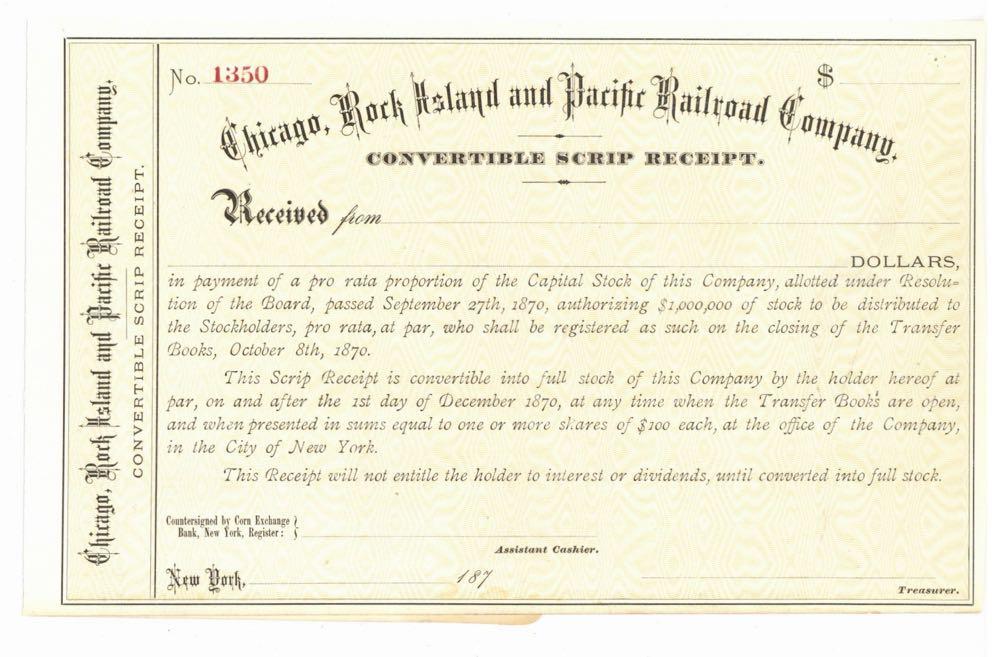 No. 1350
$
Chicago, Rock Island and Pacific Railroad Company.
CONVERTIBLE SCRIP RECEIPT.
Received from
DOLLARS,
in payment of a pro rata proportion of the Capital Stock of this Company, allotted under Resolu=
tion of the Board, passed September 27th, 1870, authorising $1,000,000 of stock to be distributed to
the Stockholders, pro rata, at par, who shall be registered as such on the closing of the Transfer
Books, October 8th, 1870.
This Scrip Receipt is convertible into full stock of this Company by the holder hereof at
par, on and after the 1st day of December 1870, at any time when the Transfer Books are open,
and when presented in sums equal to one or more shares of $100 each, at the office of the Company,
in the City of New York.
This Receipt will not entitle the holder to interest or dividends, until converted into full stock.
Countersigned by Corn Exchange
Bank, New York, Register:
Assistant Cashier.
New York, 187
Treasurer.
Chicago, Rock Island and Pacific Railroad Company,
CONVERTIBLE SCRIP RECEIPT.